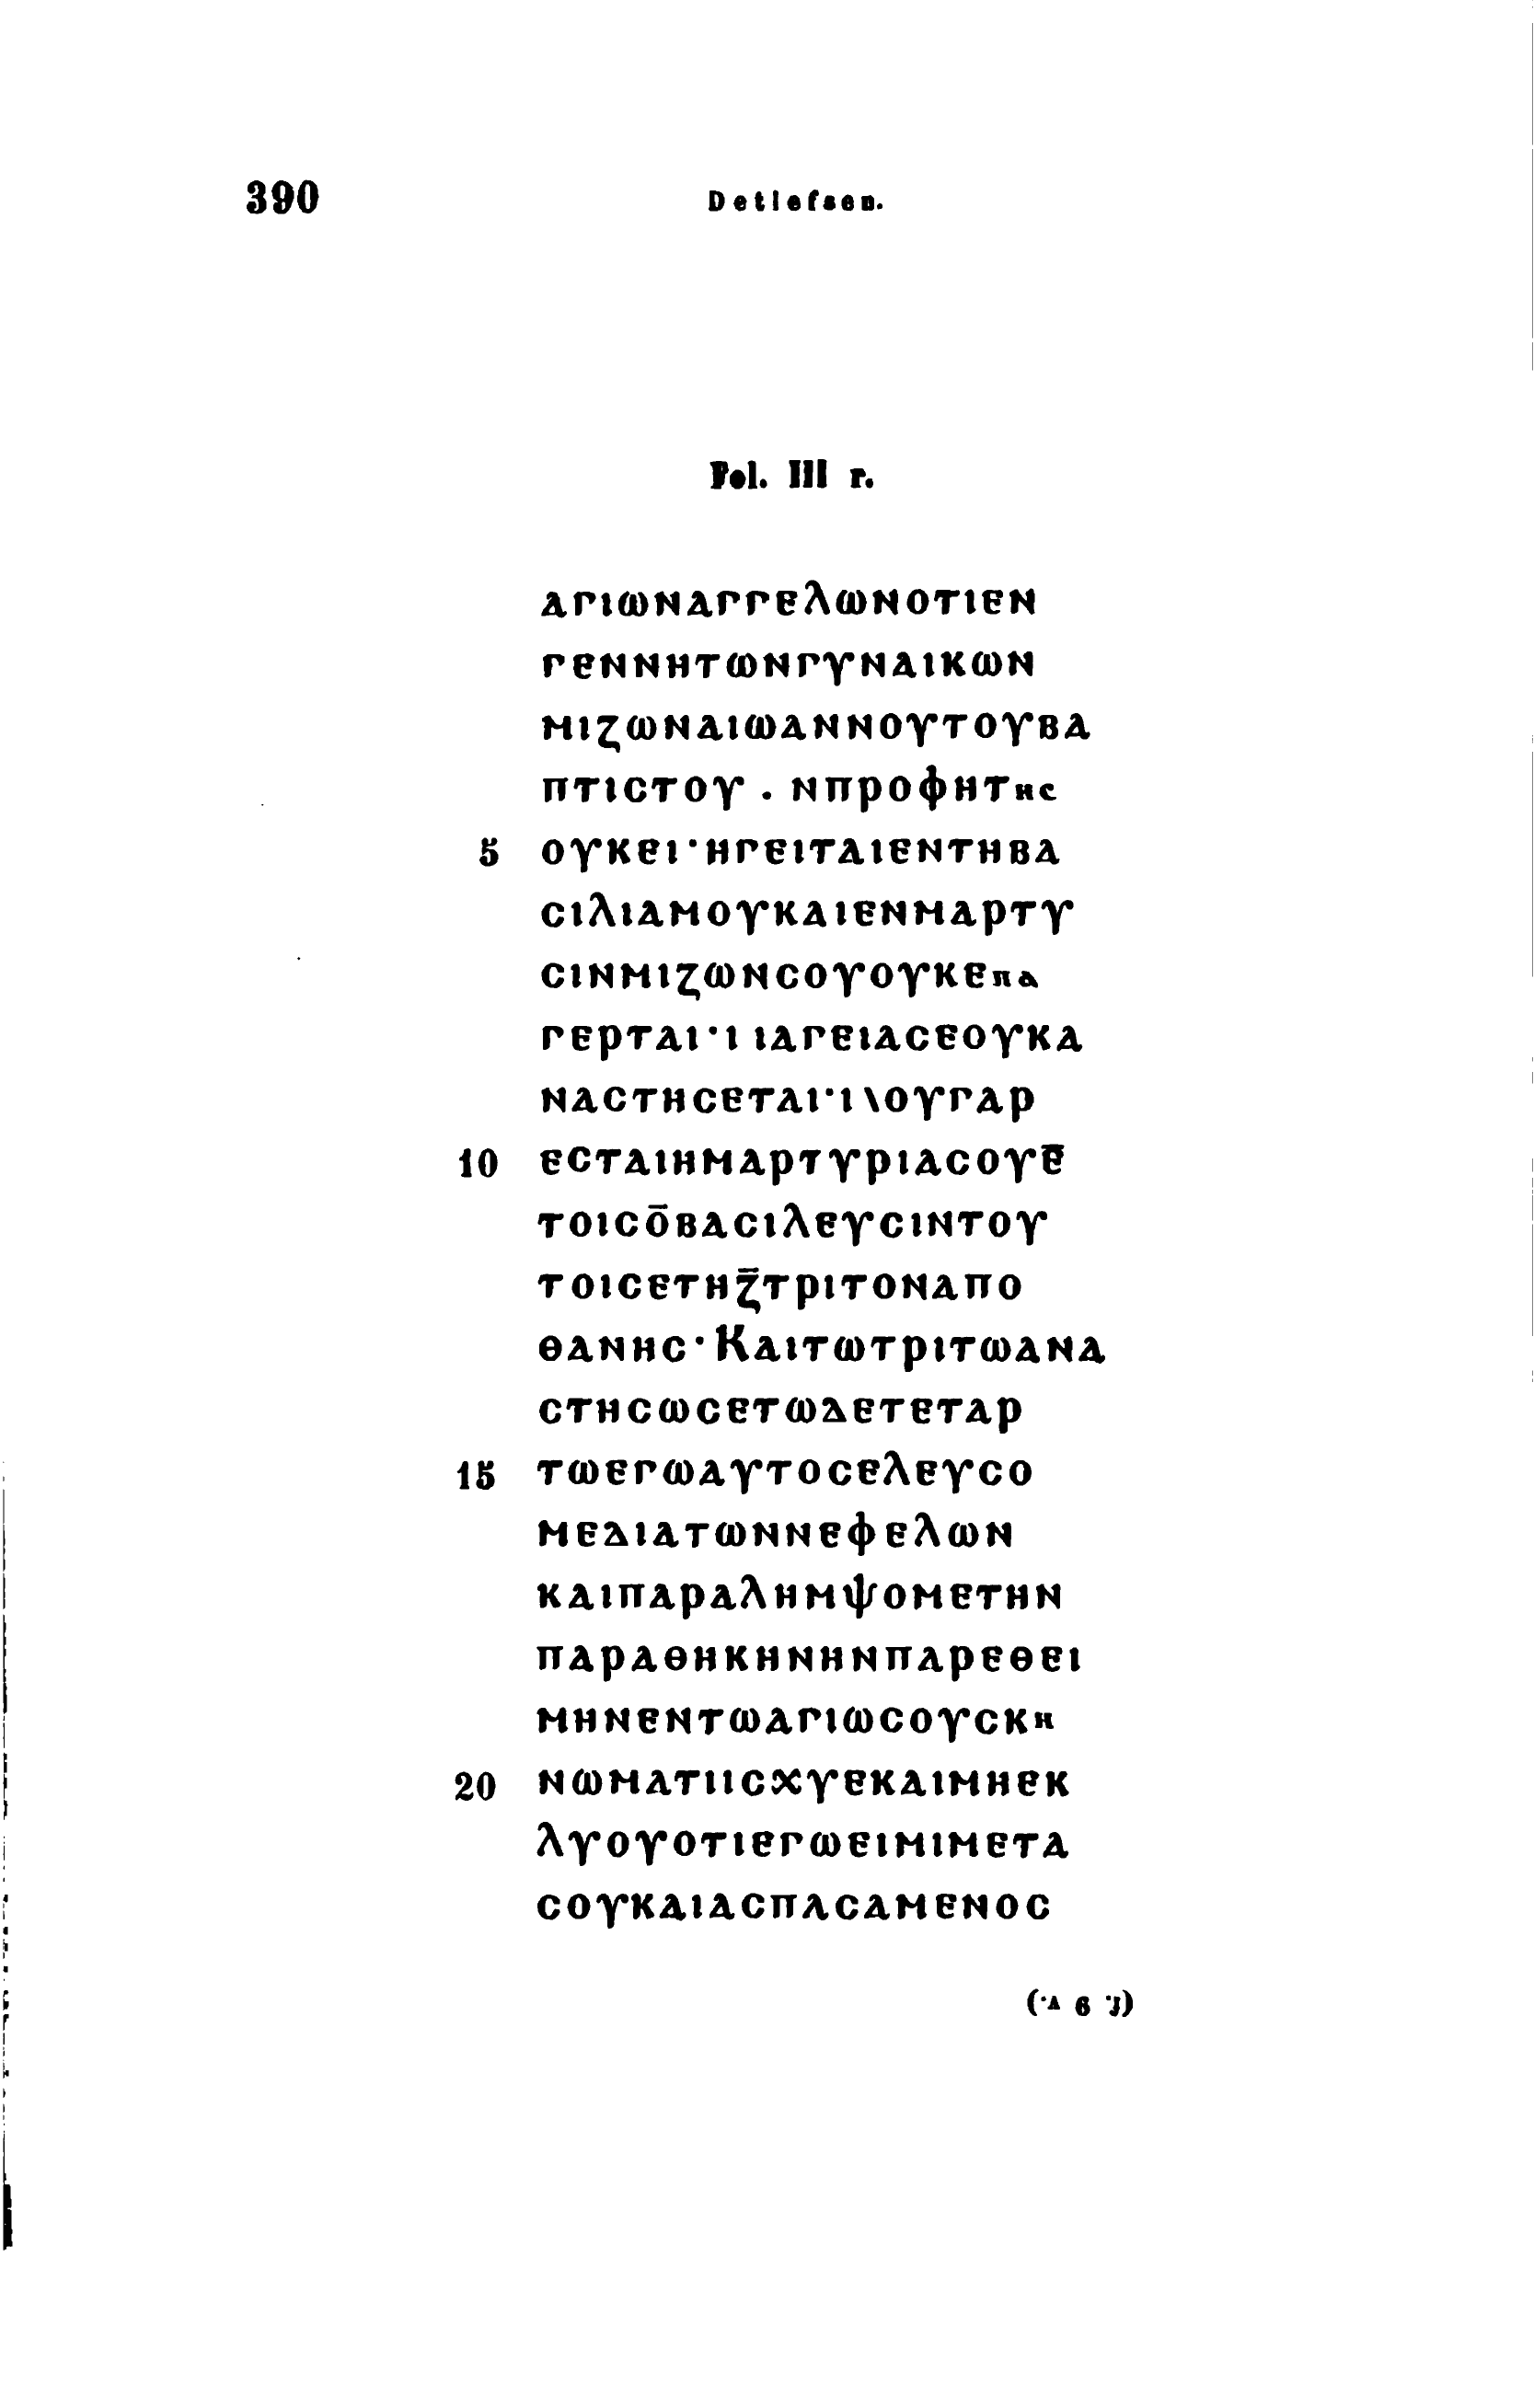 390
Detlefsen.
Fol. III r.
ΑΓΙΩΝΑΓΓΕΛΩΝΟΤΙΕΝ
ΓΕΝΝΗΤΩΝΓΥΝΑΙΚΩΝ
ΜΙΖΩΝΑΙΩΑΝΝΟΥΤΟΥΒΑ
ΠΤΙCΤΟΥ . ΝΠΡΟΦΗΤΗC
5 ΟΥΚΕΙ·ΗΓΕΙΤΑΙΕΝΤΗΒΑ
CΙΛΙΑΜΟΥΚΑΙΕΝΜΑΡΤΥ
CΙΝΜΙΖΩΝCΟΥΟΥΚΕΠΑ
ΓΕΡΤΑΙ·Ι ΙΑΓΕΙΑCΕΟΥΚΑ
ΝΑCΤΗCΕΤΑΙ·Ι\ΟΥΓΑΡ
10 ΕCΤΑΙΗΜΑΡΤΥΡΙΑCΟΥΕ̅
ΤΟΙCΟ̅ΒΑCΙΛΕΥCΙΝΤΟΥ
ΤΟΙCΕΤΗΖ̅ΤΡΙΤΟΝΑΠΟ
ΘΑΝΗC·ΚΑΙΤΩΤΡΙΤΩΑΝΑ
CΤΗCΩCΕΤΩΔΕΤΕΤΑΡ
15 ΤΩΕΓΩΑΥΤΟCΕΛΕΥCΟ
ΜΕΔΙΑΤΩΝΝΕΦΕΛΩΝ
ΚΑΙΠΑΡΑΛΗΜΨΟΜΕΤΗΝ
ΠΑΡΑΘΗΚΗΝΗΝΠΑΡΕΘΕΙ
ΜΗΝΕΝΤΩΑΓΙΩCΟΥCΚΗ
20 ΝΩΜΑΤΙΙCΧΥΕΚΑΙΜΗΕΚ
ΛΥΟΥΟΤΙΕΓΩΕΙΜΙΜΕΤΑ
CΟΥΚΑΙΑCΠΑCΑΜΕΝΟC